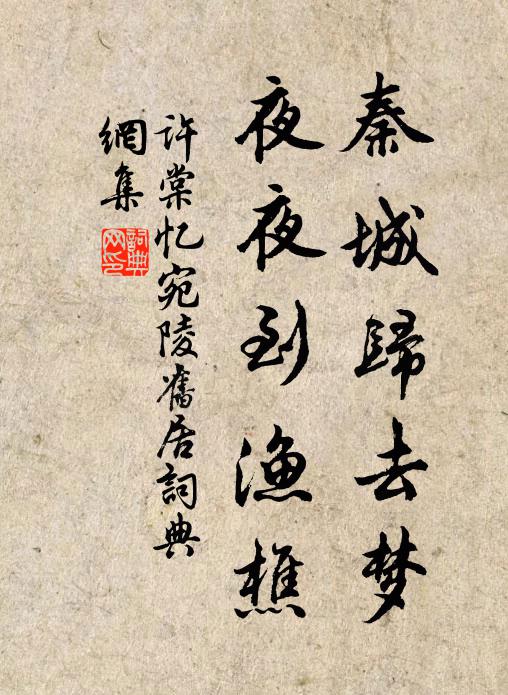 秦城歸去梦
夜夜到渔樵
许棠忆宛陵舊居詞典
網集
詞典
网印